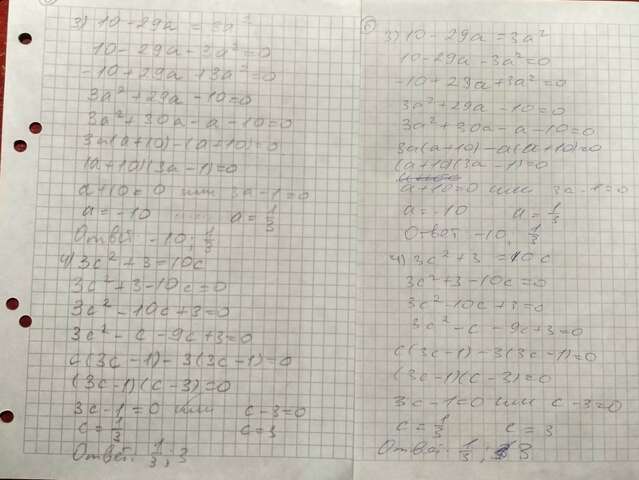 3) 10 - 29a = 3a²
10 - 29a - 3a² = 0
-10 + 29a + 3a² = 0
3a² + 29a - 10 = 0
3a² + 30a - a - 10 = 0
3a(a+10) - (a+10) = 0
(a+10)(3a-1) = 0
a+10 = 0 или 3a-1 = 0
a = -10 a = 1/3
Ответ: -10; 1/3
4) 3c² + 3 = 10c
3c² + 3 - 10c = 0
3c² - 10c + 3 = 0
3c² - c - 9c + 3 = 0
c(3c-1) - 3(3c-1) = 0
(3c-1)(c-3) = 0
3c-1 = 0 или c-3 = 0
c = 1/3 c = 3
Ответ: 1/3; 3
3) 10 - 29a = 3a²
10 - 29a - 3a² = 0
-10 + 29a + 3a² = 0
3a² + 29a - 10 = 0
3a² + 30a - a - 10 = 0
3a(a+10) - a(a+10) = 0
(a+10)(3a-1) = 0
a+10 = 0 или 3a-1 = 0
a = -10 a = 1/3
Ответ -10; 1/3
4) 3c² + 3 = 10c
3c² + 3 - 10c = 0
3c² - 10c + 3 = 0
3c² - c - 9c + 3 = 0
c(3c-1) - 3(3c-1) = 0
(3c-1)(c-3) = 0
3c-1 = 0 или c-3 = 0
c = 1/3 c = 3
Ответ: 1/3; 3